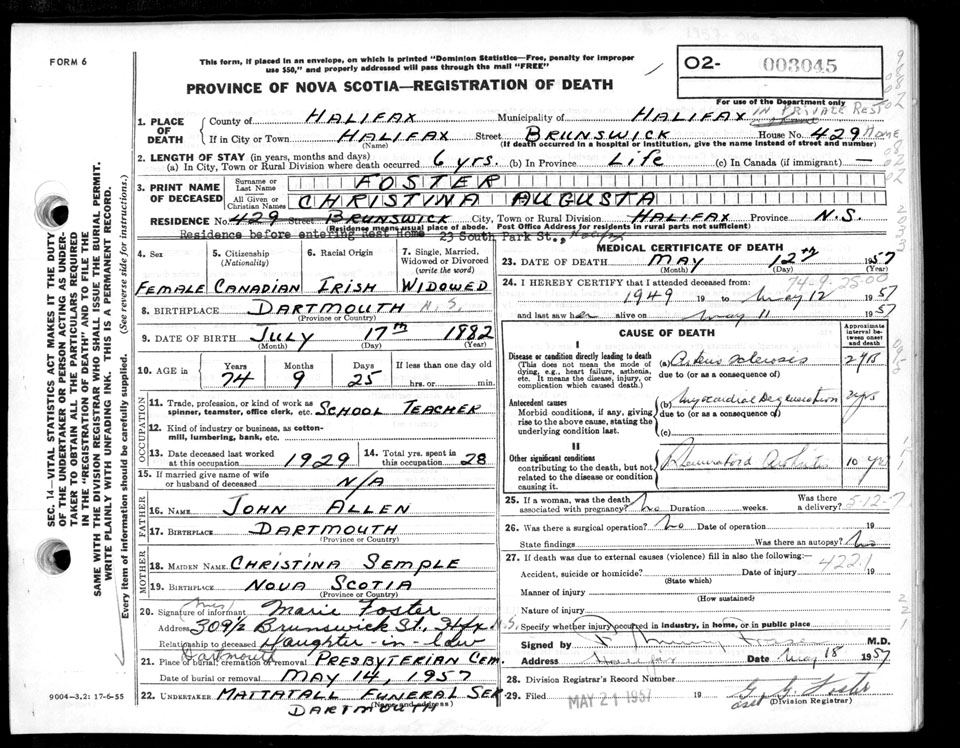 FORM 6
This form, if placed in an envelope, on which is printed "Dominion Statistics—Free, penalty for improper
use $50," and properly addressed will pass through the mail "FREE"
PROVINCE OF NOVA SCOTIA—REGISTRATION OF DEATH
O2- 003045
For use of the Department only
IN PRIVATE REST HOME
1. PLACE OF DEATH { County of HALIFAX Municipality of HALIFAX
If in City or Town HALIFAX Street BRUNSWICK House No. 429
(Name) (If death occurred in a hospital or institution, give the name instead of street and number)
2. LENGTH OF STAY (in years, months and days)
(a) In City, Town or Rural Division where death occurred 6 yrs. (b) In Province LIFE (c) In Canada (if immigrant) —
3. PRINT NAME OF DECEASED { Surname or Last Name FOSTER
All Given or Christian Names CHRISTINA AUGUSTA
RESIDENCE No. 429 Street BRUNSWICK City, Town or Rural Division HALIFAX Province N.S.
(Residence means usual place of abode. Post Office Address for residents in rural parts not sufficient)
Residence before entering Rest Home 23 South Park St.,
4. Sex FEMALE
5. Citizenship (Nationality) CANADIAN
6. Racial Origin IRISH
7. Single, Married, Widowed or Divorced (write the word) WIDOWED
8. BIRTHPLACE DARTMOUTH N.S.
(Province or Country)
9. DATE OF BIRTH JULY 17th 1882
(Month) (Day) (Year)
10. AGE in { Years 74 Months 9 Days 25 If less than one day old hrs. or min.
OCCUPATION
11. Trade, profession, or kind of work as spinner, teamster, office clerk, etc. SCHOOL TEACHER
12. Kind of industry or business, as cotton-mill, lumbering, bank, etc.
13. Date deceased last worked at this occupation 1929 14. Total yrs. spent in this occupation 28
15. If married give name of wife or husband of deceased N/A
FATHER
16. NAME JOHN ALLEN
17. BIRTHPLACE DARTMOUTH
(Province or Country)
MOTHER
18. MAIDEN NAME CHRISTINA SEMPLE
19. BIRTHPLACE NOVA SCOTIA
(Province or Country)
20. Signature of informant Mrs Marie Foster
Address 309½ Brunswick St., Hfx N.S.
Relationship to deceased Daughter-in-law
21. Place of burial, cremation or removal Dartmouth PRESBYTERIAN CEM.
Date of burial or removal MAY 14, 1957
22. UNDERTAKER MATTATALL FUNERAL SER
(Name and address)
DARTMOUTH
MEDICAL CERTIFICATE OF DEATH
23. DATE OF DEATH MAY 12th 1957
(Month) (Day) (Year)
24. I HEREBY CERTIFY that I attended deceased from:
74-9-25-00
1949 19 to May 12 1957
and last saw her alive on May 11 1957
CAUSE OF DEATH
Approximate interval between onset and death
I
Disease or condition directly leading to death
(This does not mean the mode of dying, e.g., heart failure, asthenia, etc. It means the disease, injury, or complication which caused death.)
(a) Arterio sclerosis 2 yrs
due to (or as a consequence of)
Antecedent causes
Morbid conditions, if any, giving rise to the above cause, stating the underlying condition last.
(b) Myocardial Degeneration 2 yrs
due to (or as a consequence of)
(c)
II
Other significant conditions
contributing to the death, but not related to the disease or condition causing it.
Rheumatoid Arthritis 10 yrs
25. If a woman, was the death associated with pregnancy? No Duration weeks. Was there a delivery?
5-12-7
26. Was there a surgical operation? No Date of operation 19
State findings Was there an autopsy? No
27. If death was due to external causes (violence) fill in also the following:—
4221
Accident, suicide or homicide? Date of injury 19
(State which)
Manner of injury
(How sustained)
Nature of injury
Specify whether injury occurred in industry, in home, or in public place
Signed by M.D.
Address Halifax Date May 18 1957
28. Division Registrar's Record Number
29. Filed MAY 21 1957 19 G. G. Foster
(Division Registrar)
9004-3.2: 17-6-55
SEC. 14—VITAL STATISTICS ACT MAKES IT THE DUTY
OF THE UNDERTAKER OR PERSON ACTING AS UNDER-
TAKER TO OBTAIN ALL THE PARTICULARS REQUIRED
IN THE "REGISTRATION OF DEATH" AND TO FILE THE
SAME WITH THE DIVISION REGISTRAR WHO SHALL ISSUE THE BURIAL PERMIT.
WRITE PLAINLY WITH UNFADING INK. THIS IS A PERMANENT RECORD.
Every item of information should be carefully supplied. (See reverse side for instructions.)